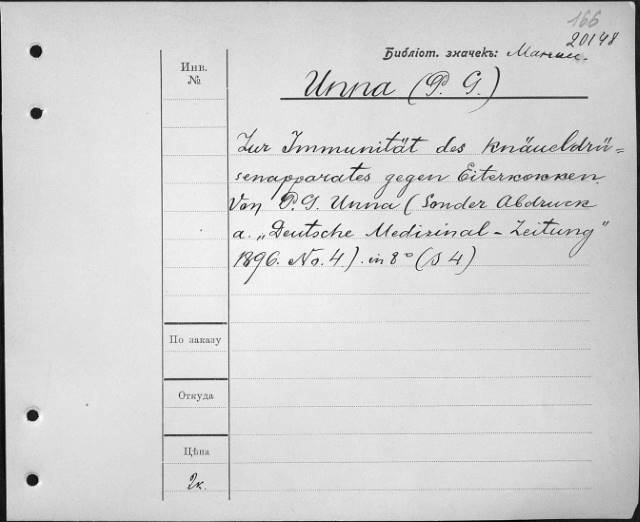 166
20148
Библіот. значекъ:
Инв.
№
Unna (P. G.)
Zur Immunität des Knäueldrü=
senapparates gegen Eiterkokken.
Von P. G. Unna (Sonder Abdruck
a. „Deutsche Medizinal-Zeitung"
1896. No. 4). in 8° (S 4)
По заказу
Откуда
Цѣна
2к.